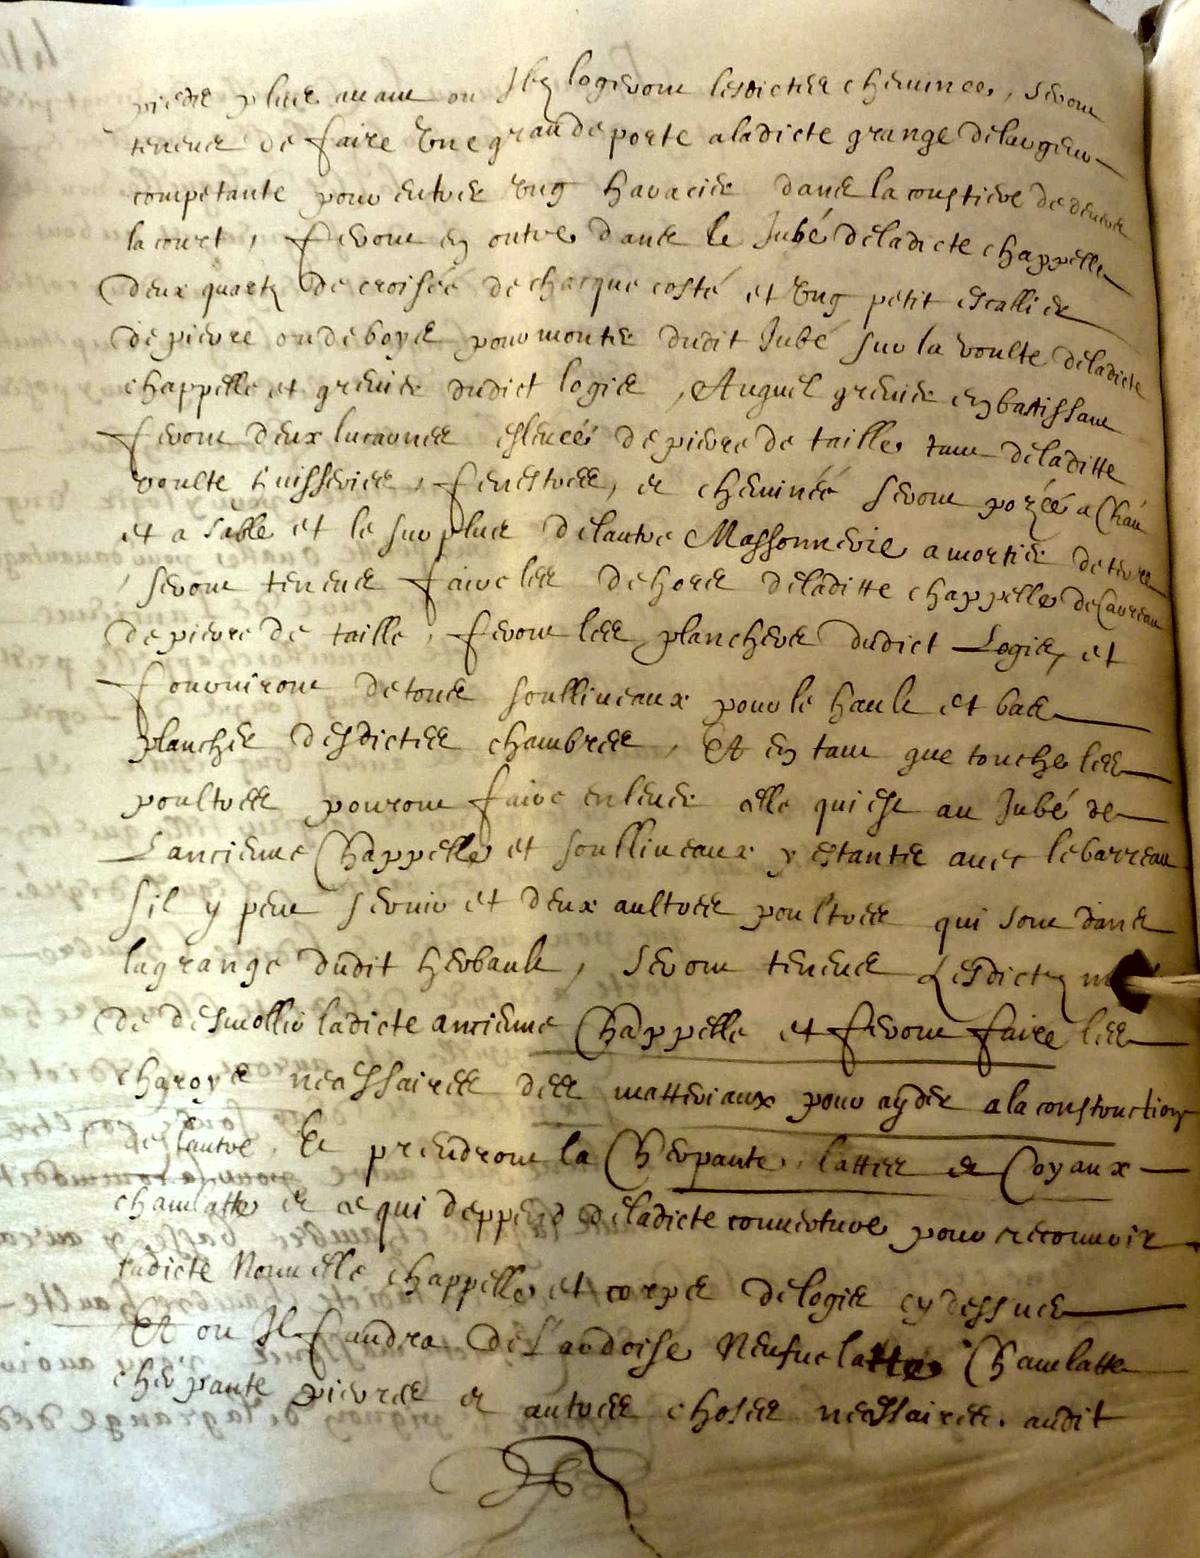 piedz plus avant ou Ilz logeront lesdictes cheminees, seront
tenus de faire Une grande porte a ladicte grange de largeur
competante pour entrer Ung harnois dans la coustiere de devers
la court, feront en outre dans le Jubé de ladicte chappelle
deux quartz de croisée de chacque costé et Ung petit escallier
de pierre ou de boys pour monter dudit Jubé sur la voulte de ladicte
chappelle et grenier dudict logis, Auquel grenier en batissant
feront deux lucarnes eslevéé de pierre de taille tant de laditte
voulte huisseries, fenestres, et cheminéé seront pozéé a Chau
et a sable et le surplus de lautre Massonnerie a mortier de terre
seront tenus faire les dehors de laditte chappelle de Carreau
de pierre de taille, feront les planchers dudict Logis, et
fourniront de tous soulliveaux pour le hault et bas
plancher desdictes chambres, Et en tant que touche les
poultres pouront faire enlever celle qui est au Jubé de
Lancienne Chappelle et soulliveaux y estantz avec le barreau
sil y peut servir et deux aultres poultres qui sont dans
la grange dudit herbault, seront tenus Lesdictz
de desmollir ladicte ancienne Chappelle et feront faire les
charoys necessaires des matteriaux pour ayder a la construction
de lautre, Et prendront la Cherpante, lattes et Coyaux
chanlatte et ce qui deppend de ladicte couverture pour recouvrir
ladicte Nouvelle chappelle et corps de logis cy dessus
Et ou Il faudra de l'ardoise Neufve latte Chanlatte
cherpante pierres et autres choses necessaires. audit